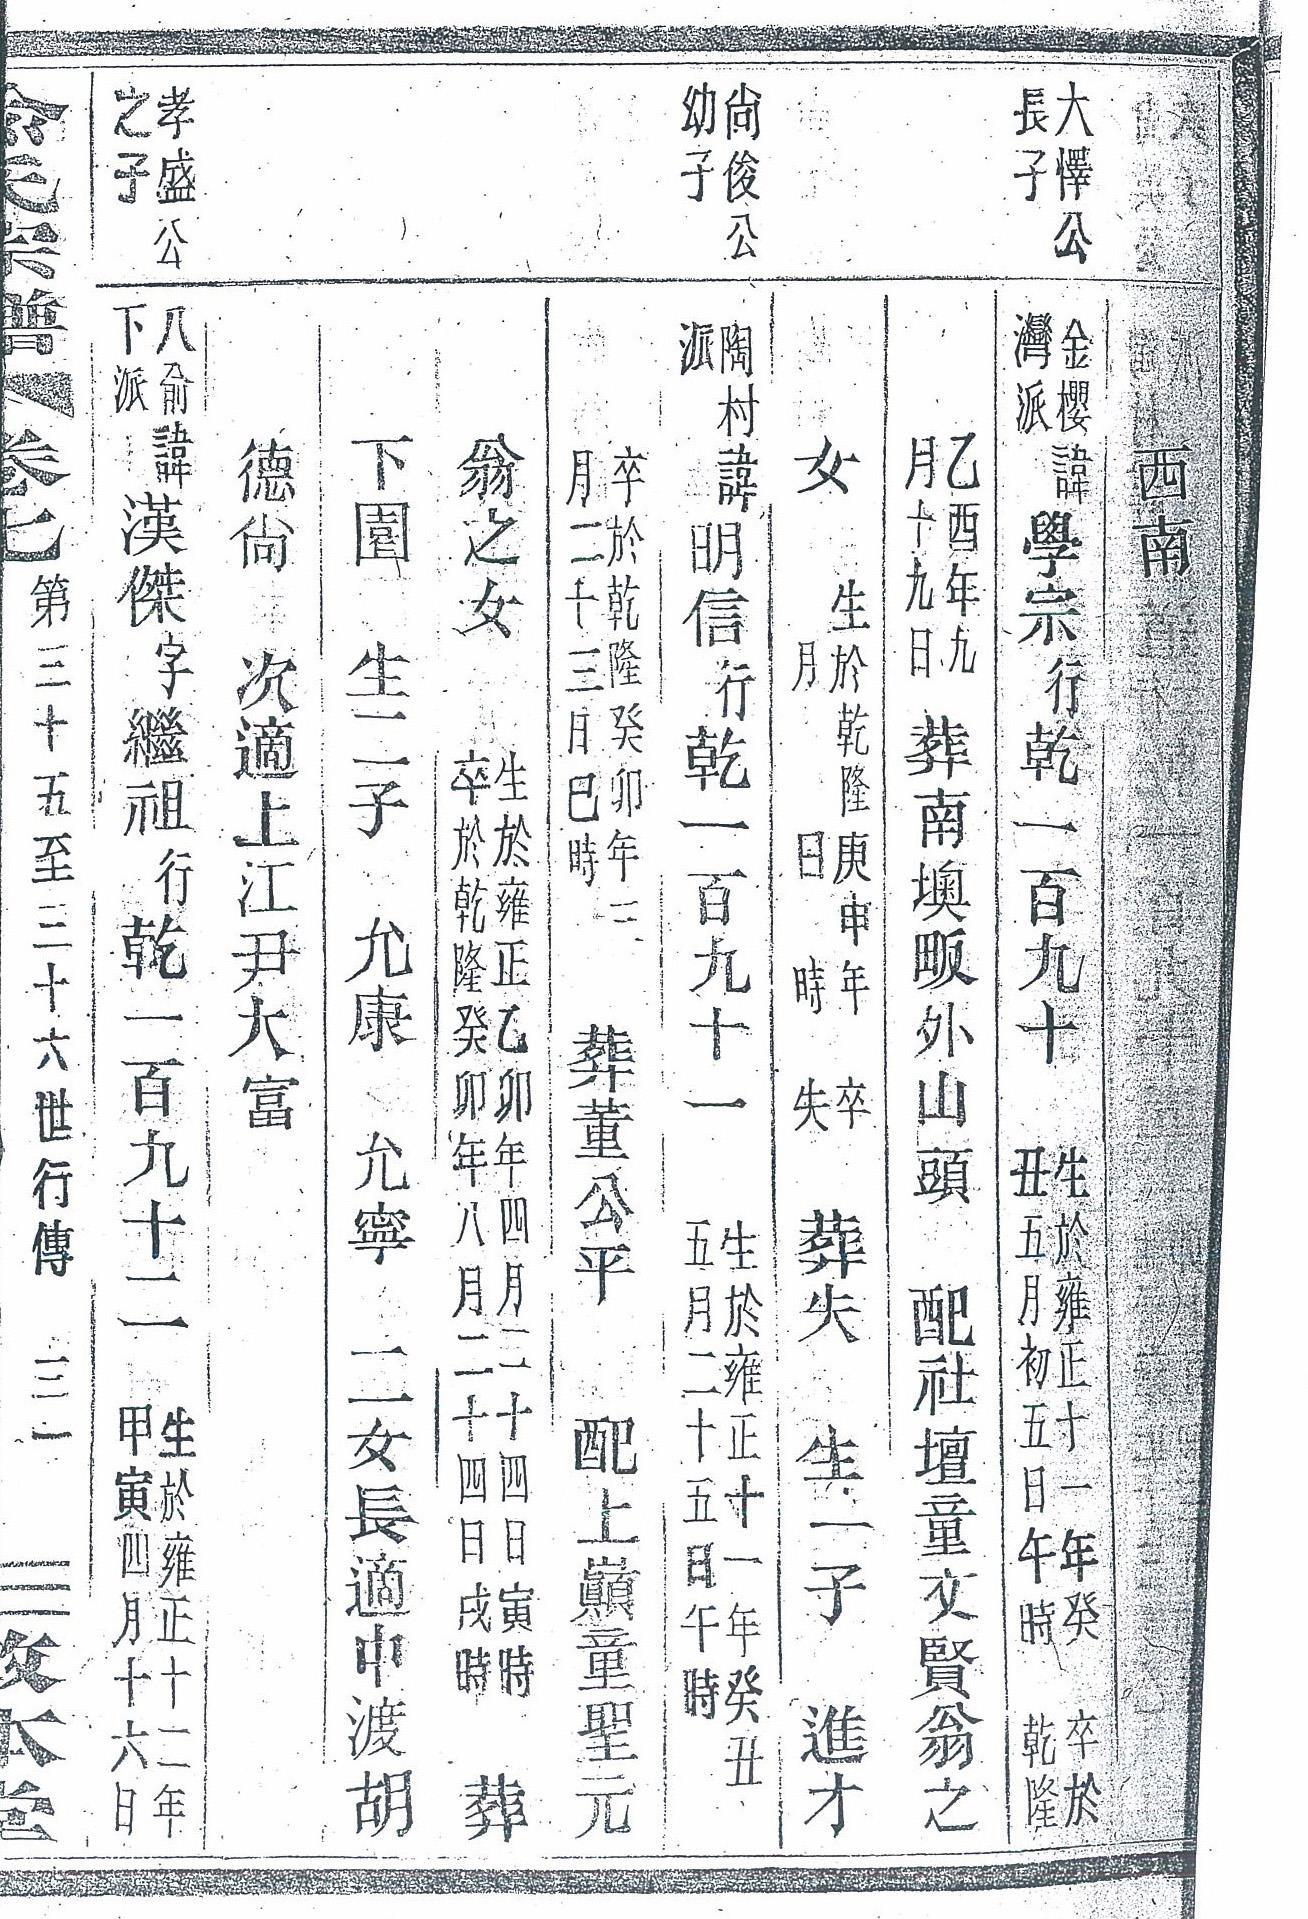 西南
大懌公
長子
金櫻
灣派
諱學宗行乾一百九十
生於雍正十一年癸
丑五月初五日午時
卒於
乾隆
乙酉年九
月十九日
葬南墺畈外山頭 配社壇童文賢翁之
女
生於乾隆庚申年 卒
月 日 時 失
葬失 生一子 進才
尙俊公
幼子
陶村
派
諱明信行乾一百九十一
生於雍正十一年癸丑
五月二十五日午時
卒於乾隆癸卯年三
月二十三日巳時
葬董公平 配上巔童聖元
翁之女
生於雍正乙卯年四月二十四日寅時
卒於乾隆癸卯年八月二十四日戌時
葬
下園 生二子 允康 允寧 二女長適中渡胡
德尙 次適上江尹大富
孝盛公
之子
八俞
下派
諱漢傑字繼祖行乾一百九十二
生於雍正十二年
甲寅四月十六日
俞氏宗譜 卷七 第三十五至三十六世行傳 三一 敦本堂